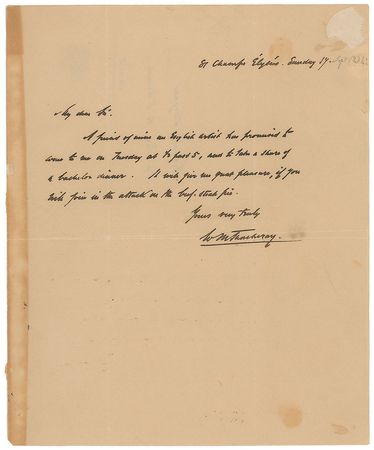 81 Champs Élysées. Sunday 17.
My dear Sir.
A friend of mine an English artist has promised to
come to me on Tuesday at ½ past 5, and to take a share of
a bachelor dinner. It will give me great pleasure, if you
will join in the attack on the beef steak pie.
Yours very truly
W M Thackeray.